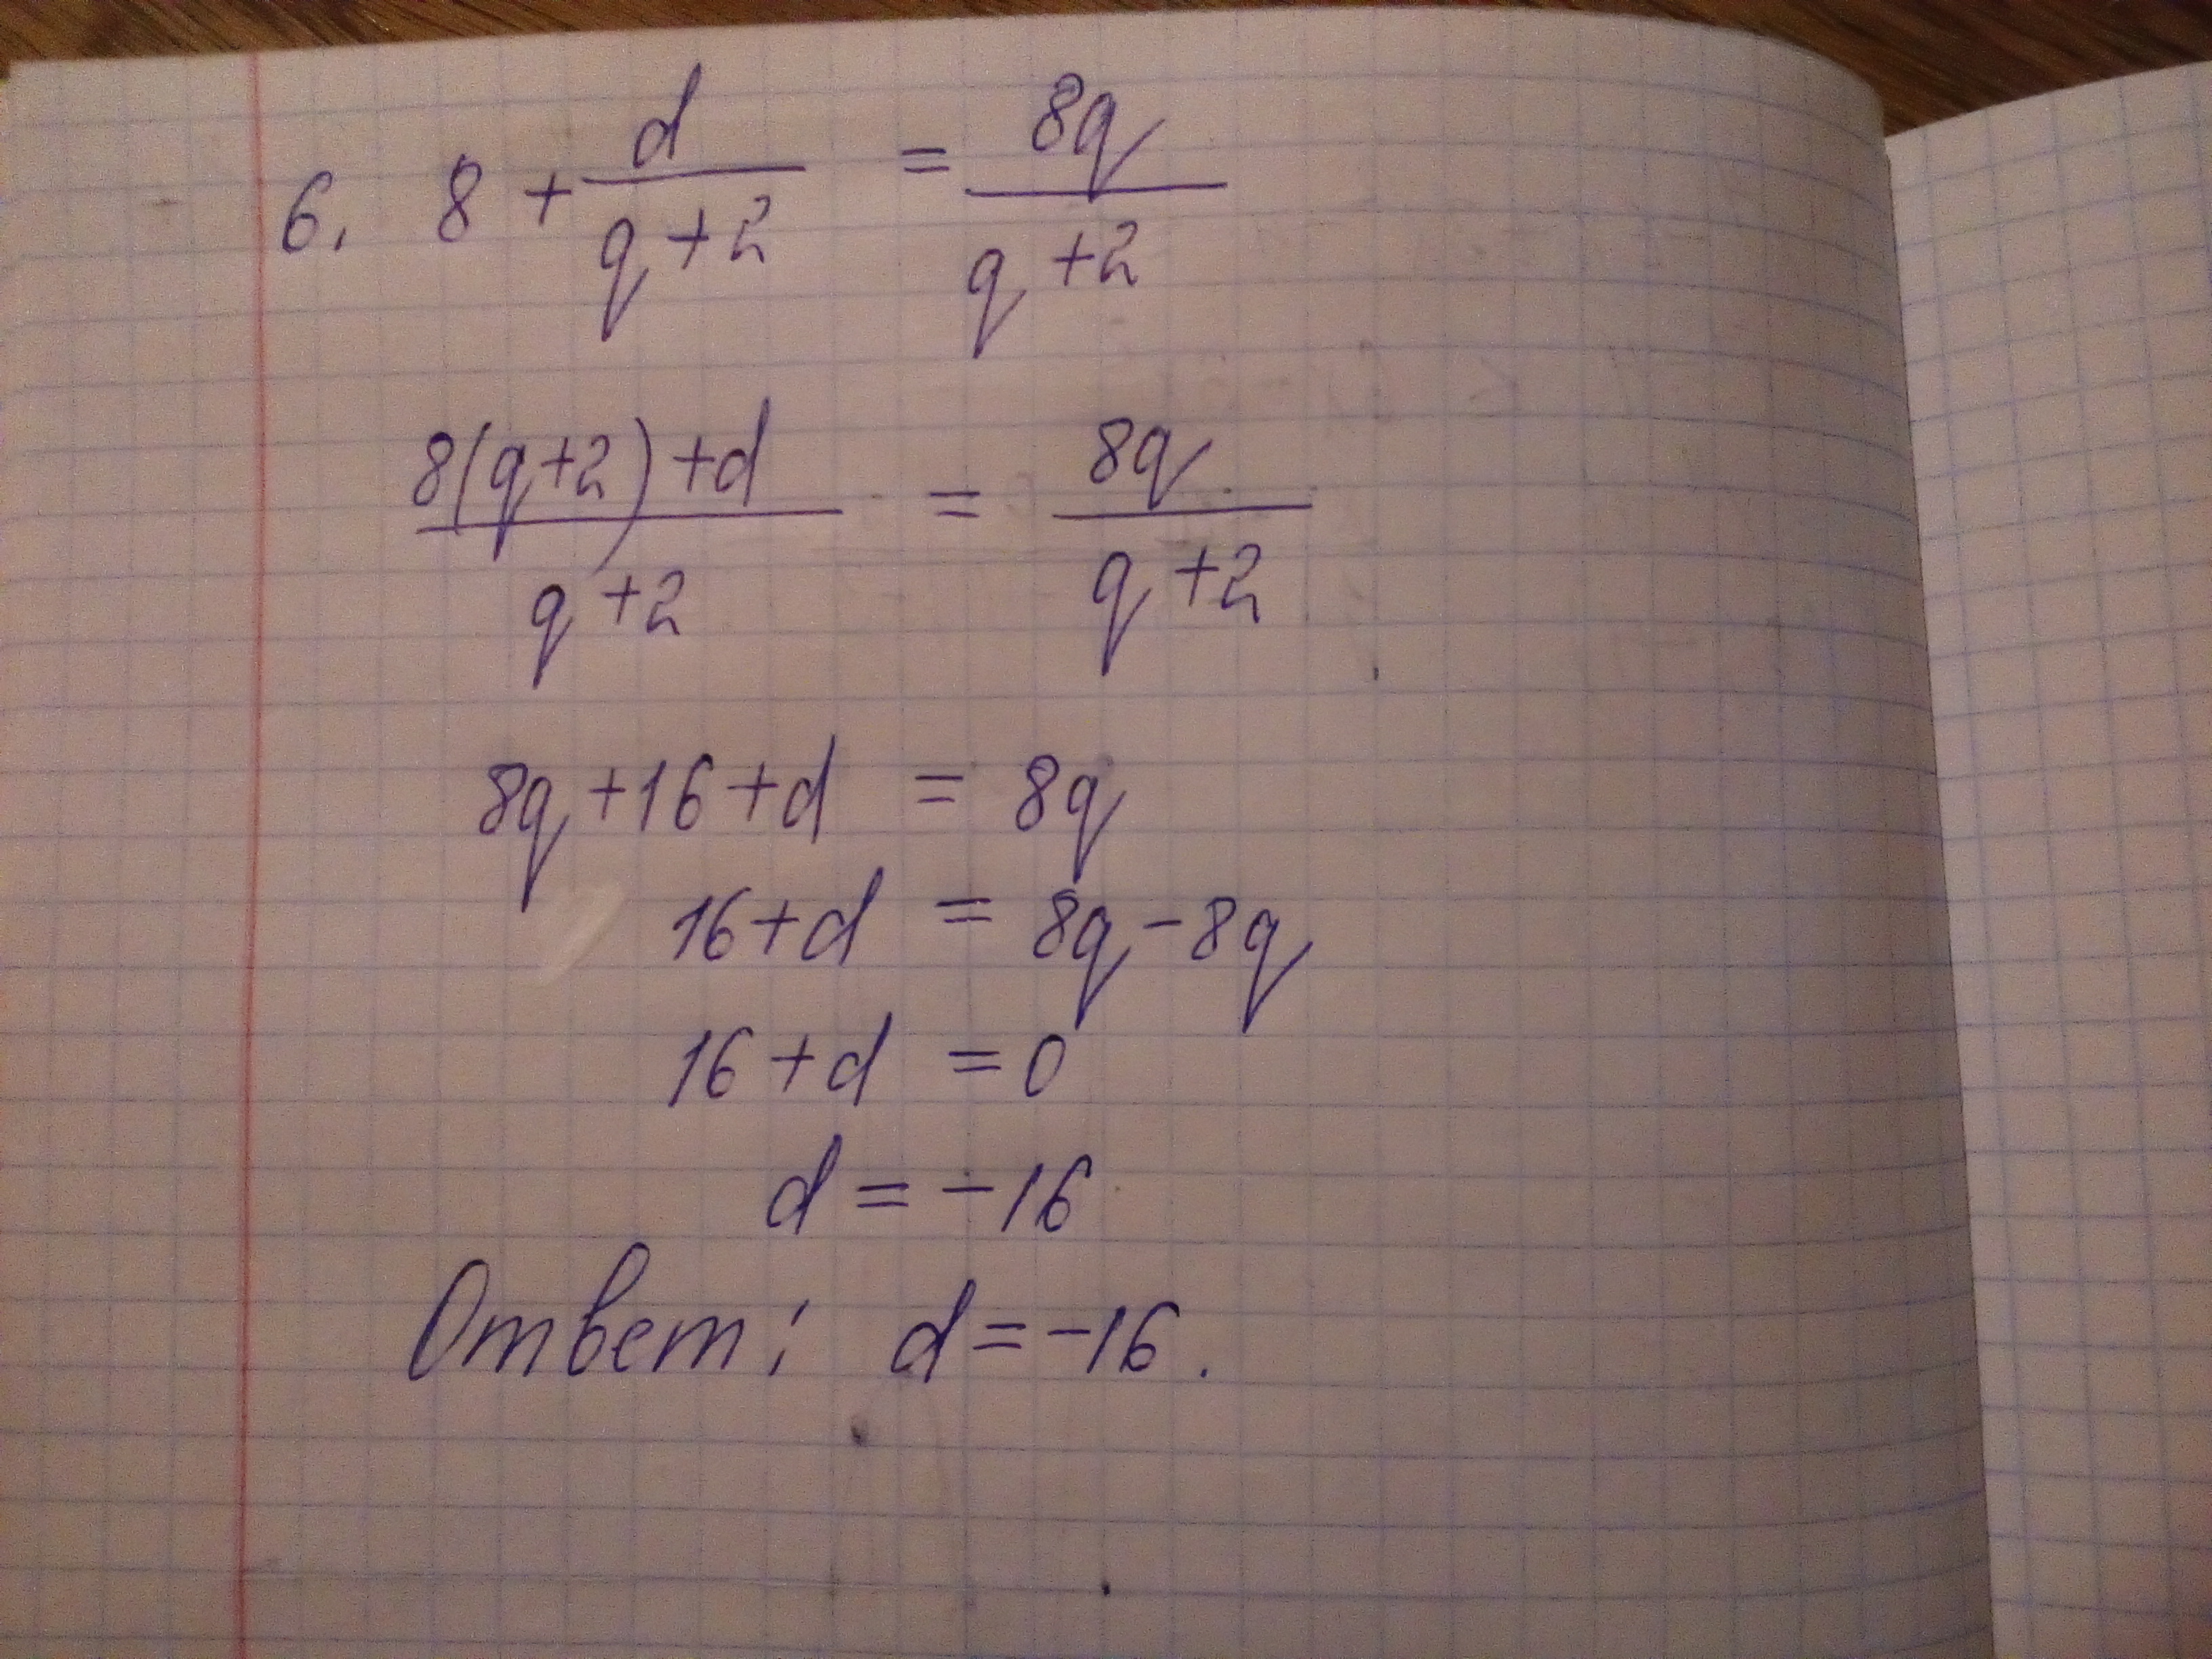 6. 8 + d/(q+2) = 8q/(q+2)
(8(q+2)+d)/(q+2) = 8q/(q+2)
8q+16+d = 8q
16+d = 8q-8q
16+d = 0
d = -16
Ответ: d = -16.